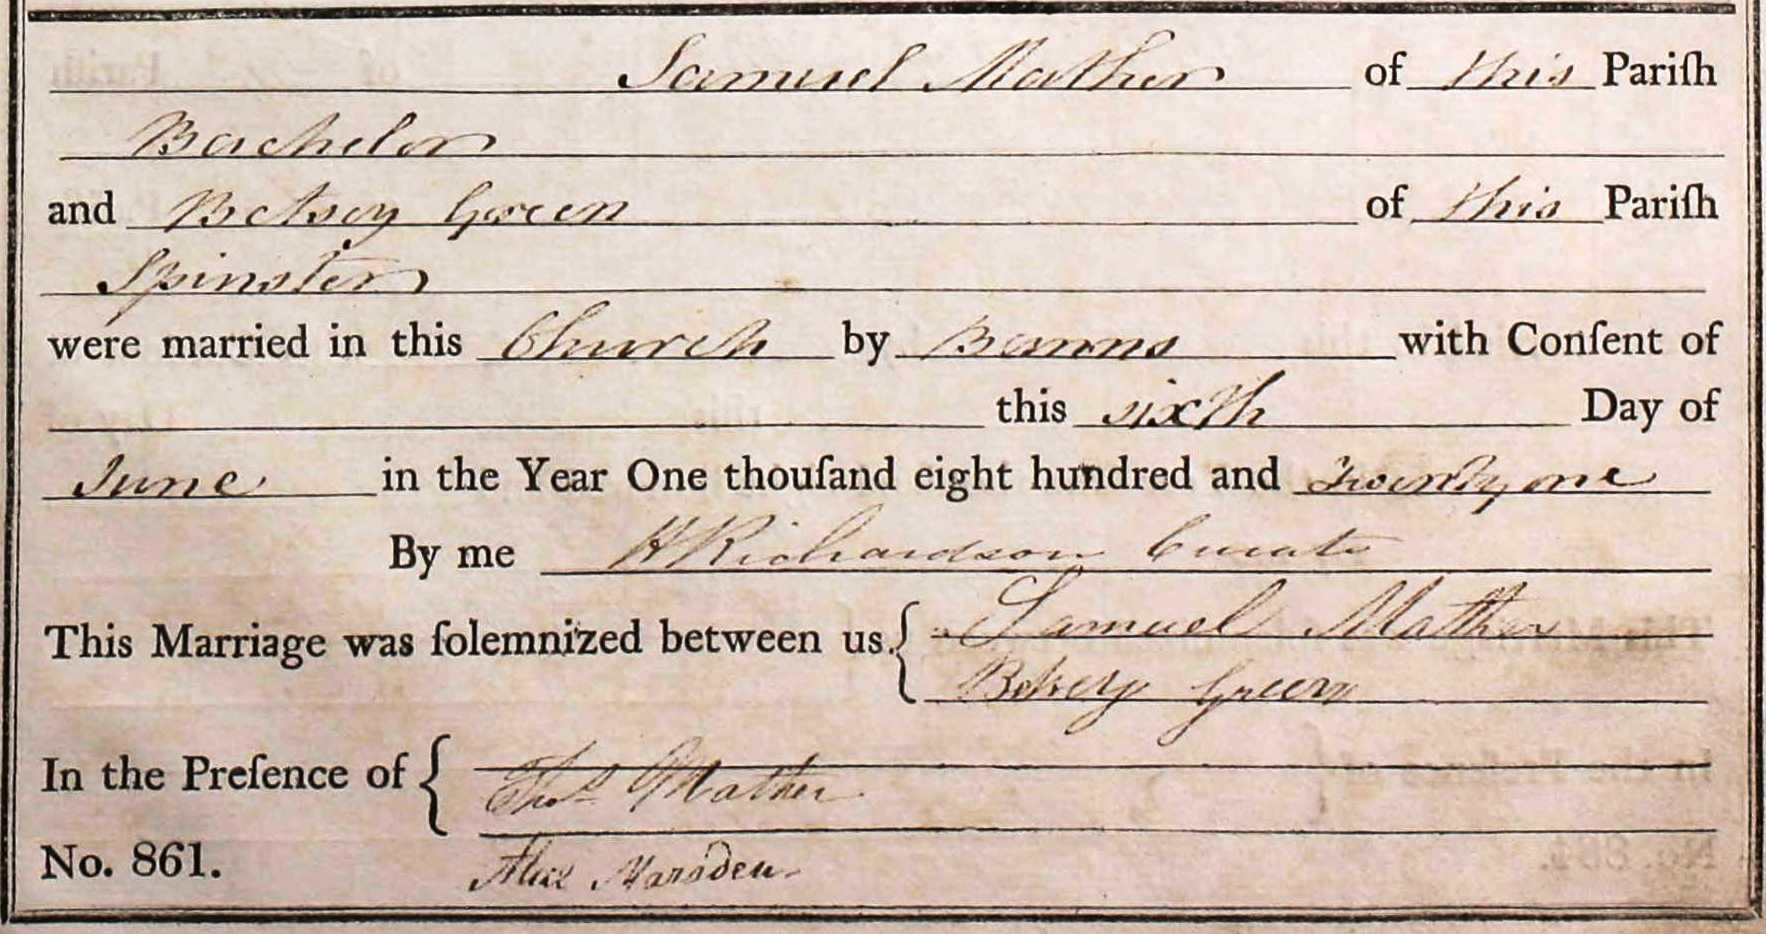 Samuel Mather of this Pariſh
Bachelor
and Betsey Green of this Pariſh
Spinster
were married in this Church by Banns with Conſent of
this sixth Day of
June in the Year One thouſand eight hundred and Twenty one
By me H Richardson Curate
This Marriage was ſolemnized between us. Samuel Mather
Betsey Green
In the Preſence of Thos Mather
No. 861. Alex Marsden